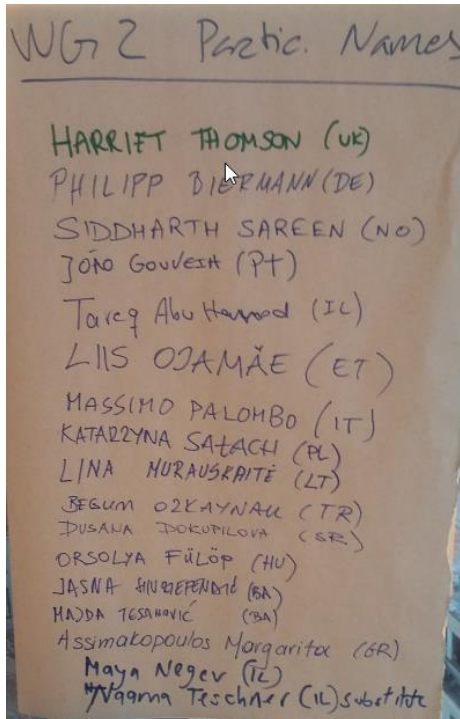 WG2 Partic. Names
HARRIET THOMSON (UK)
PHILIPP BIERMANN (DE)
SIDDHARTH SAREEN (NO)
JOÃO GOUVEIA (PT)
Tareq Abu Hamed (IL)
LIIS OJAMÄE (ET)
MASSIMO PALOMBO (IT)
KATARZYNA SAŁACH (PL)
LINA MURAUSKAITĖ (LT)
BEGUM OZKAYNAK (TR)
DUSANA DOKUPILOVA (SR)
ORSOLYA FÜLÖP (HU)
JASNA (BA)
MAJDA TESANOVIĆ (BA)
Assimakopoulos Margarita (GR)
Maya Negev (IL)
Naama Teschner (IL) substitute